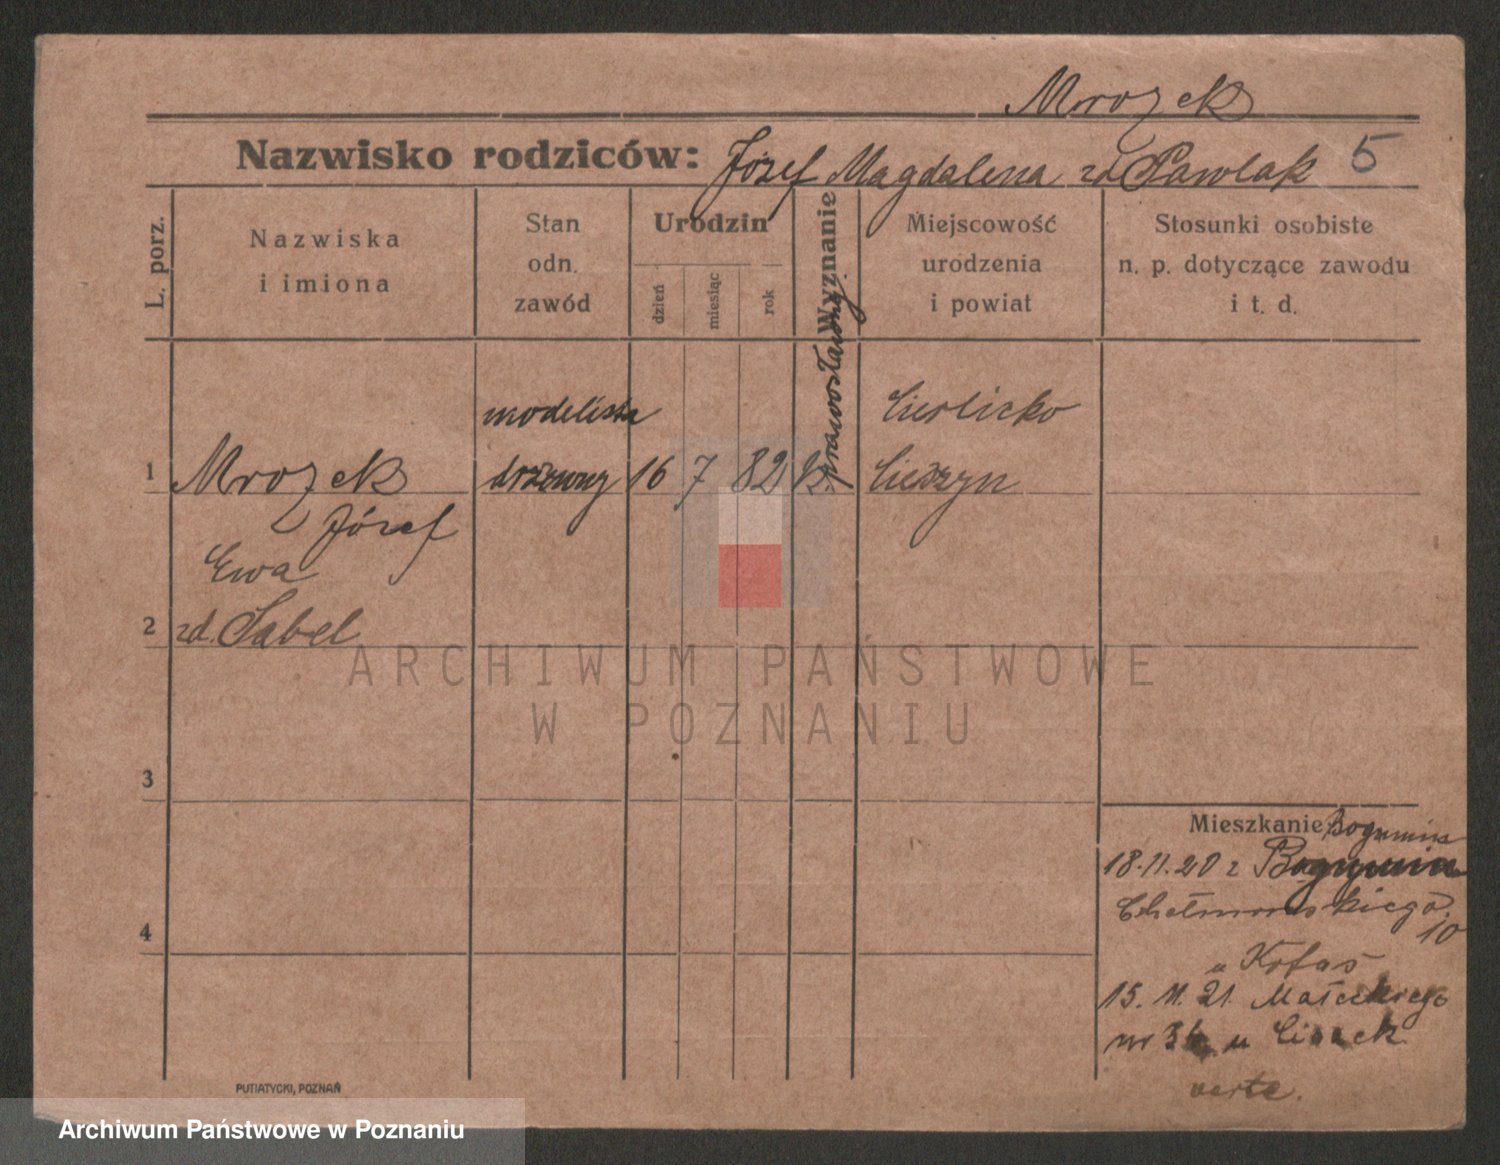 Mrozek
Nazwisko rodziców: Józef Magdalena zd Pawlak 5
L. porz.
Nazwiska
i imiona
Stan
odn.
zawód
Urodzin
dzień
miesiąc
rok
Wyznanie
Miejscowość
urodzenia
i powiat
Stosunki osobiste
n. p. dotyczące zawodu
i t. d.
prawosławny
modelista
Cierlicko
1 Mrozek drzewny 16 7 82 Cieszyn
Józef
Ewa
2 zd. Sabel
ARCHIWUM PAŃSTWOWE
W POZNANIU
3
Mieszkanie Bogumina
18.11.20 z Bogumina
4 Chełmońskiego
10
u Kofaś
15. 11. 21. Małeckiego
nr u
verte.
PUTIATYCKI, POZNAŃ
Archiwum Państwowe w Poznaniu